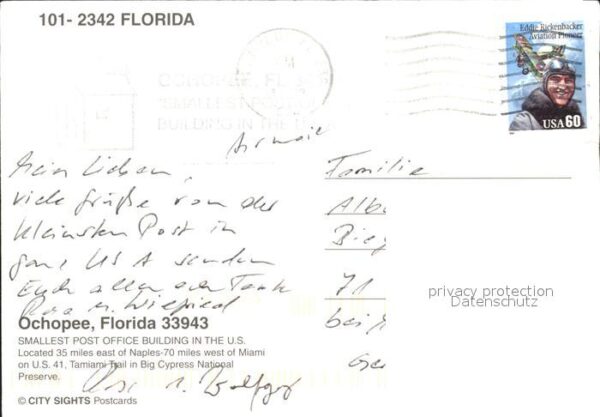 101- 2342 FLORIDA
Eddie Rickenbacker
Aviation Pioneer
USA60
OCHOPEE, FL
"SMALLEST POST
BUILDING IN THE
Airmail
Familie
Alb
Bieg
71
bei
Ger
Mein Lieben,
viele Grüße von der
kleinsten Post in
ganz USA senden
Euch allen
Rosa u. Wilfried
privacy protection
Datenschutz
Ochopee, Florida 33943
SMALLEST POST OFFICE BUILDING IN THE U.S.
Located 35 miles east of Naples-70 miles west of Miami
on U.S. 41, Tamiami Trail in Big Cypress National
Preserve.
u. Wolfgg
© CITY SIGHTS Postcards